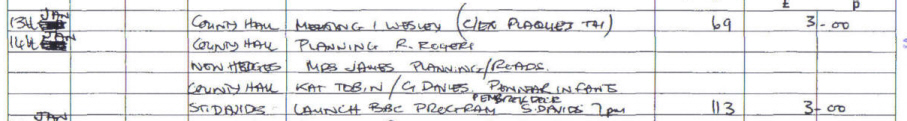 £ p
13th JAN COUNTY HALL MEETING I WESLEY (C/EX PLAQUES TAI) 69 3-00
14th JAN COUNTY HALL PLANNING R. ROGERS
NEW HEDGES MRS JAMES PLANNING/ROADS.
COUNTY HALL KAT TOBIN/G DAVIES, PENNAR INFANTS
PEMBROKE DOCK
ST.DAVIDS LAUNCH BBC PROGRAM S.DAVIDS 7pm 113 3-00
JAN